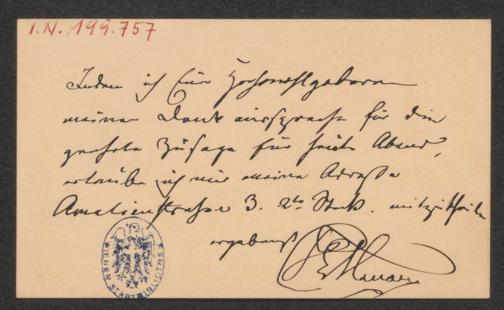 I.N. 199.757
Indem ich Euer Hochwohlgeboren
meinen Dank ausspreche für die
geehrte Zusage für heute Abend,
erlaube ich mir meine Adresse
Amalienstrasse 3. 2te Stock. mitzutheilen
ergebenst
WIENER STADTBIBLIOTHEK